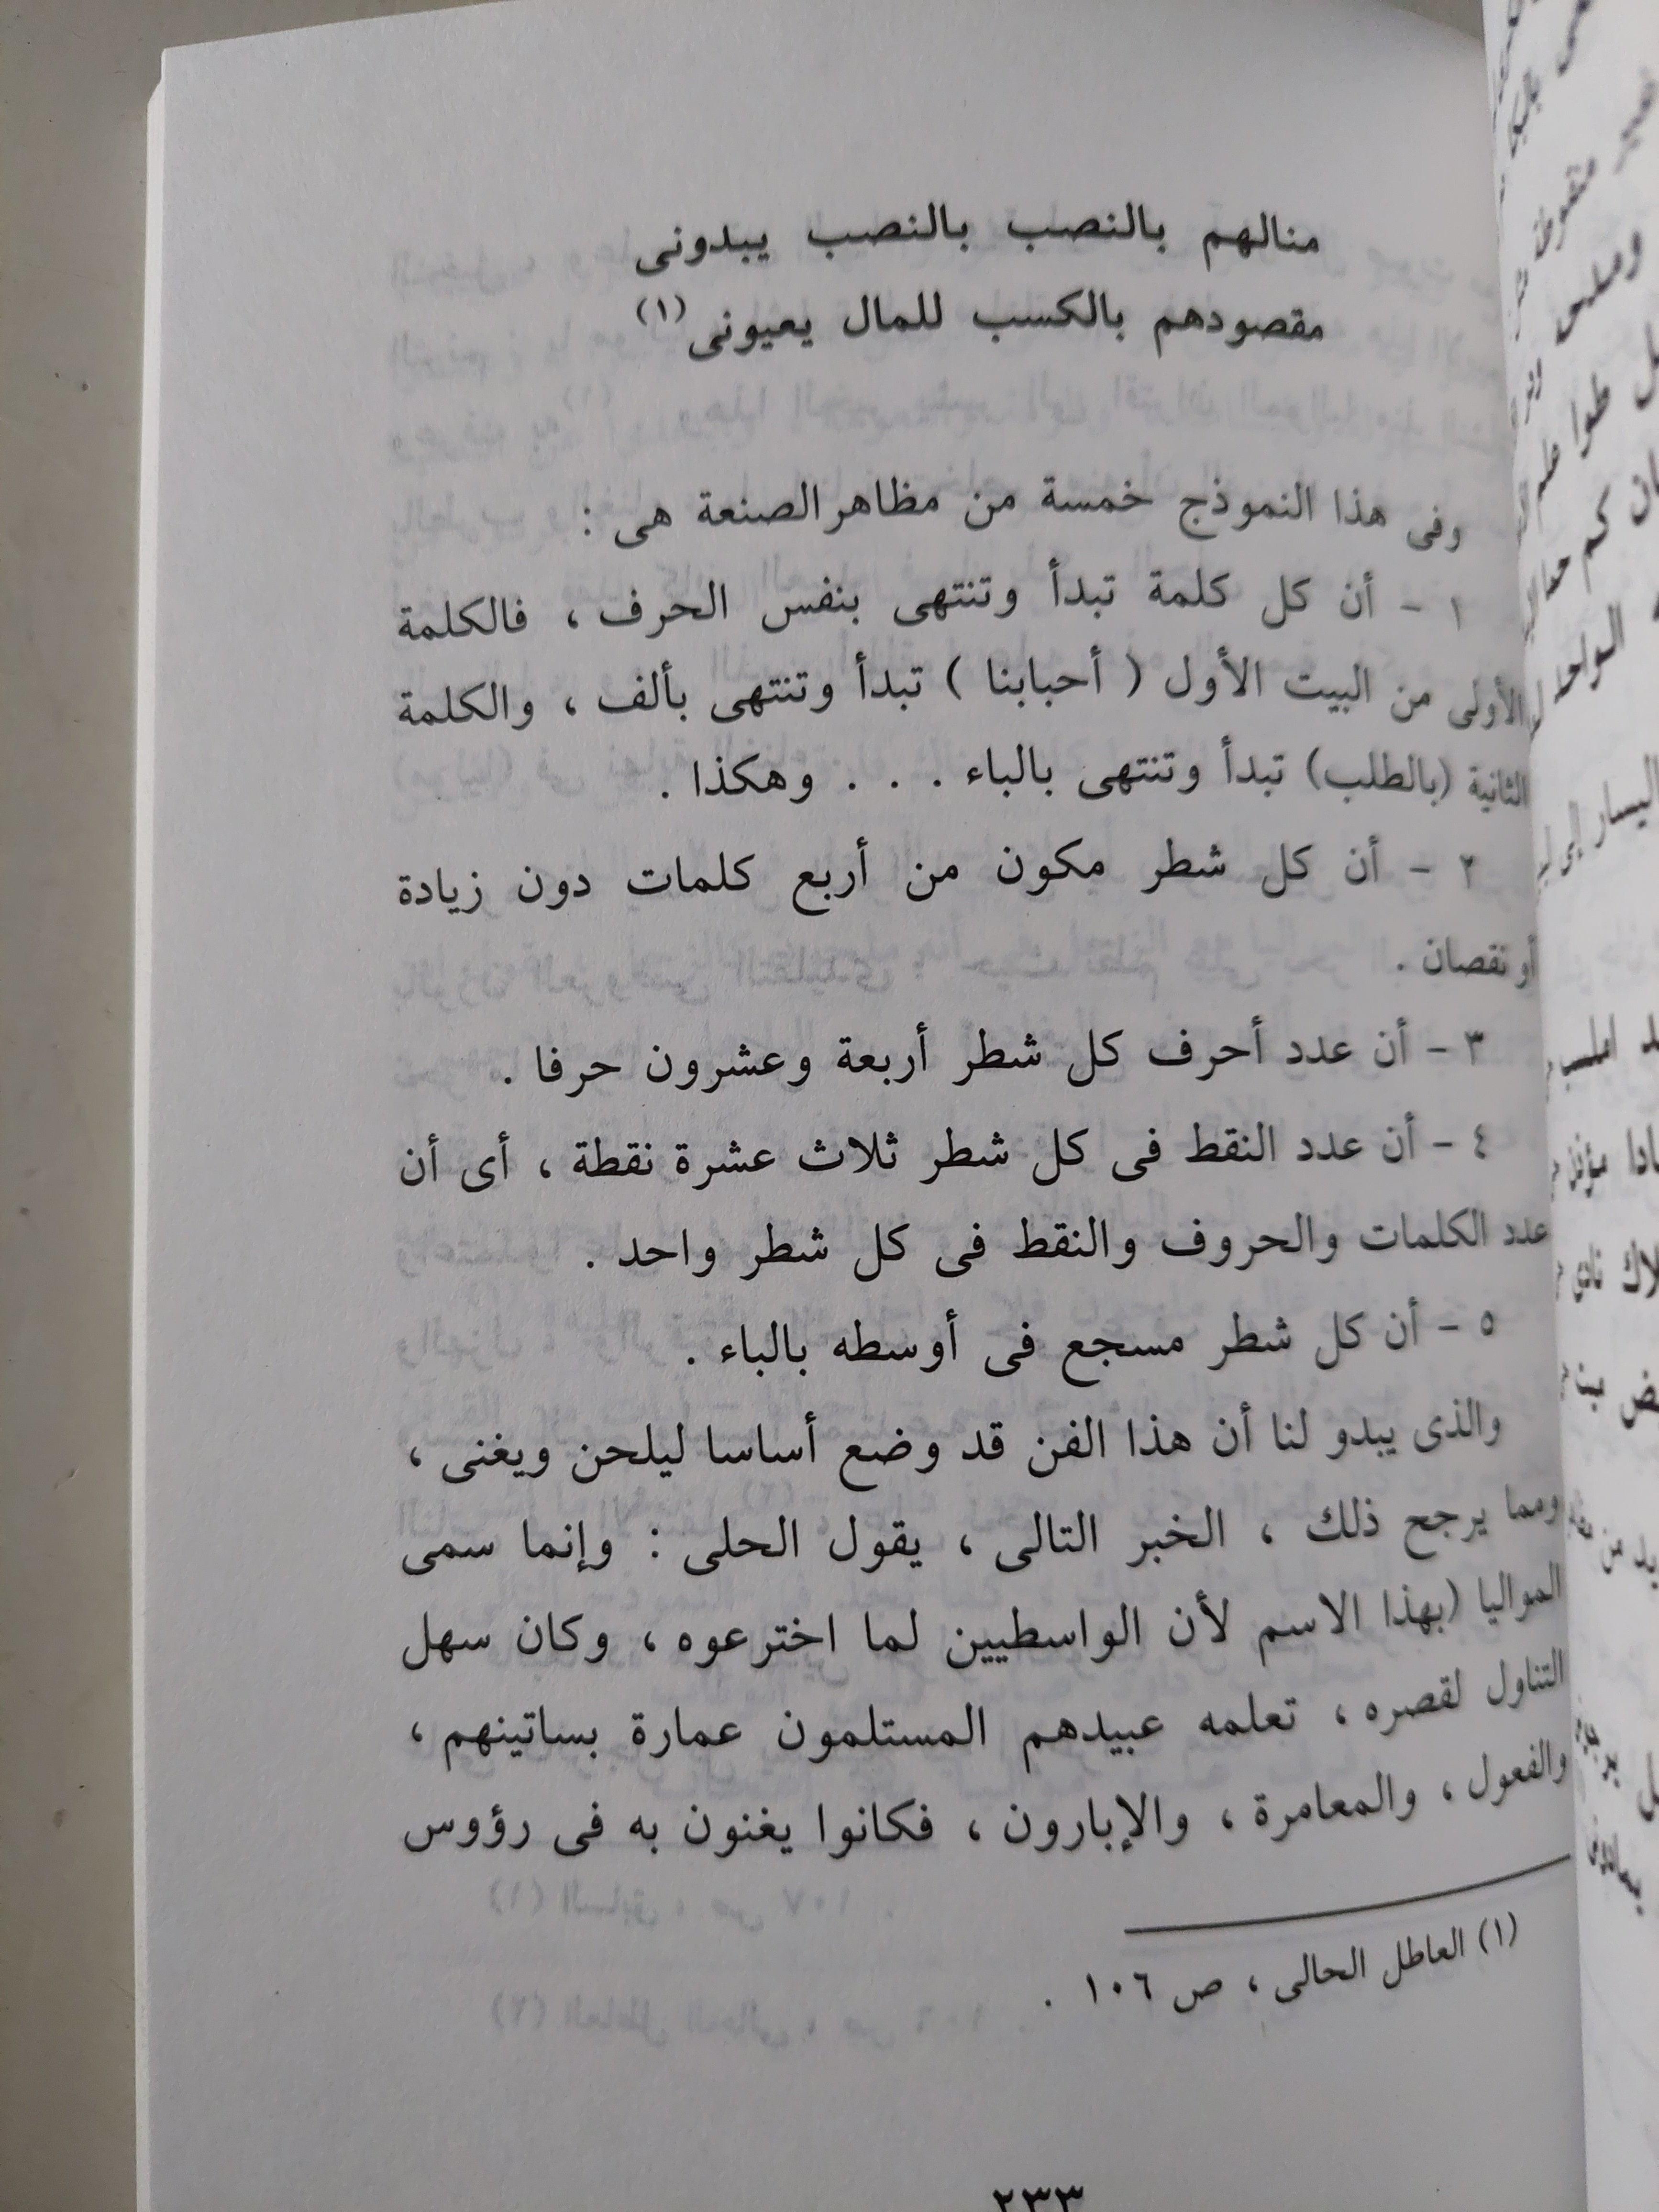 منالهم بالنصب بالنصب يبدونى
مقصودهم بالكسب للمال يعيونى (١)
وفى هذا النموذج خمسة من مظاهر الصنعة هى :
١ - أن كل كلمة تبدأ وتنتهى بنفس الحرف ، فالكلمة
الأولى من البيت الأول ( أحبابنا ) تبدأ وتنتهى بألف ، والكلمة
الثانية (بالطلب) تبدأ وتنتهى بالباء . . . وهكذا .
٢ - أن كل شطر مكون من أربع كلمات دون زيادة
أو نقصان .
٣ - أن عدد أحرف كل شطر أربعة وعشرون حرفا .
٤ - أن عدد النقط فى كل شطر ثلاث عشرة نقطة ، أى أن
عدد الكلمات والحروف والنقط فى كل شطر واحد .
٥ - أن كل شطر مسجع فى أوسطه بالباء .
والذى يبدو لنا أن هذا الفن قد وضع أساسا ليلحن ويغنى ،
ومما يرجح ذلك ، الخبر التالى ، يقول الحلى : وإنما سمى
المواليا (بهذا الاسم لأن الواسطيين لما اخترعوه ، وكان سهل
التناول لقصره ، تعلمه عبيدهم المستلمون عمارة بساتينهم ،
والفعول ، والمعامرة ، والإبارون ، فكانوا يغنون به فى رؤوس
(١) العاطل الحالى ، ص ١٠٦ .
٢٣٣